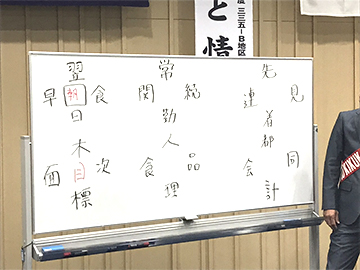 度 三三五-B地区
と情
翌 常 先
早 朝 食 関 続 連 見
日 勤 着
木 人 都
価 目 次 食 品 会 同
標 理 計